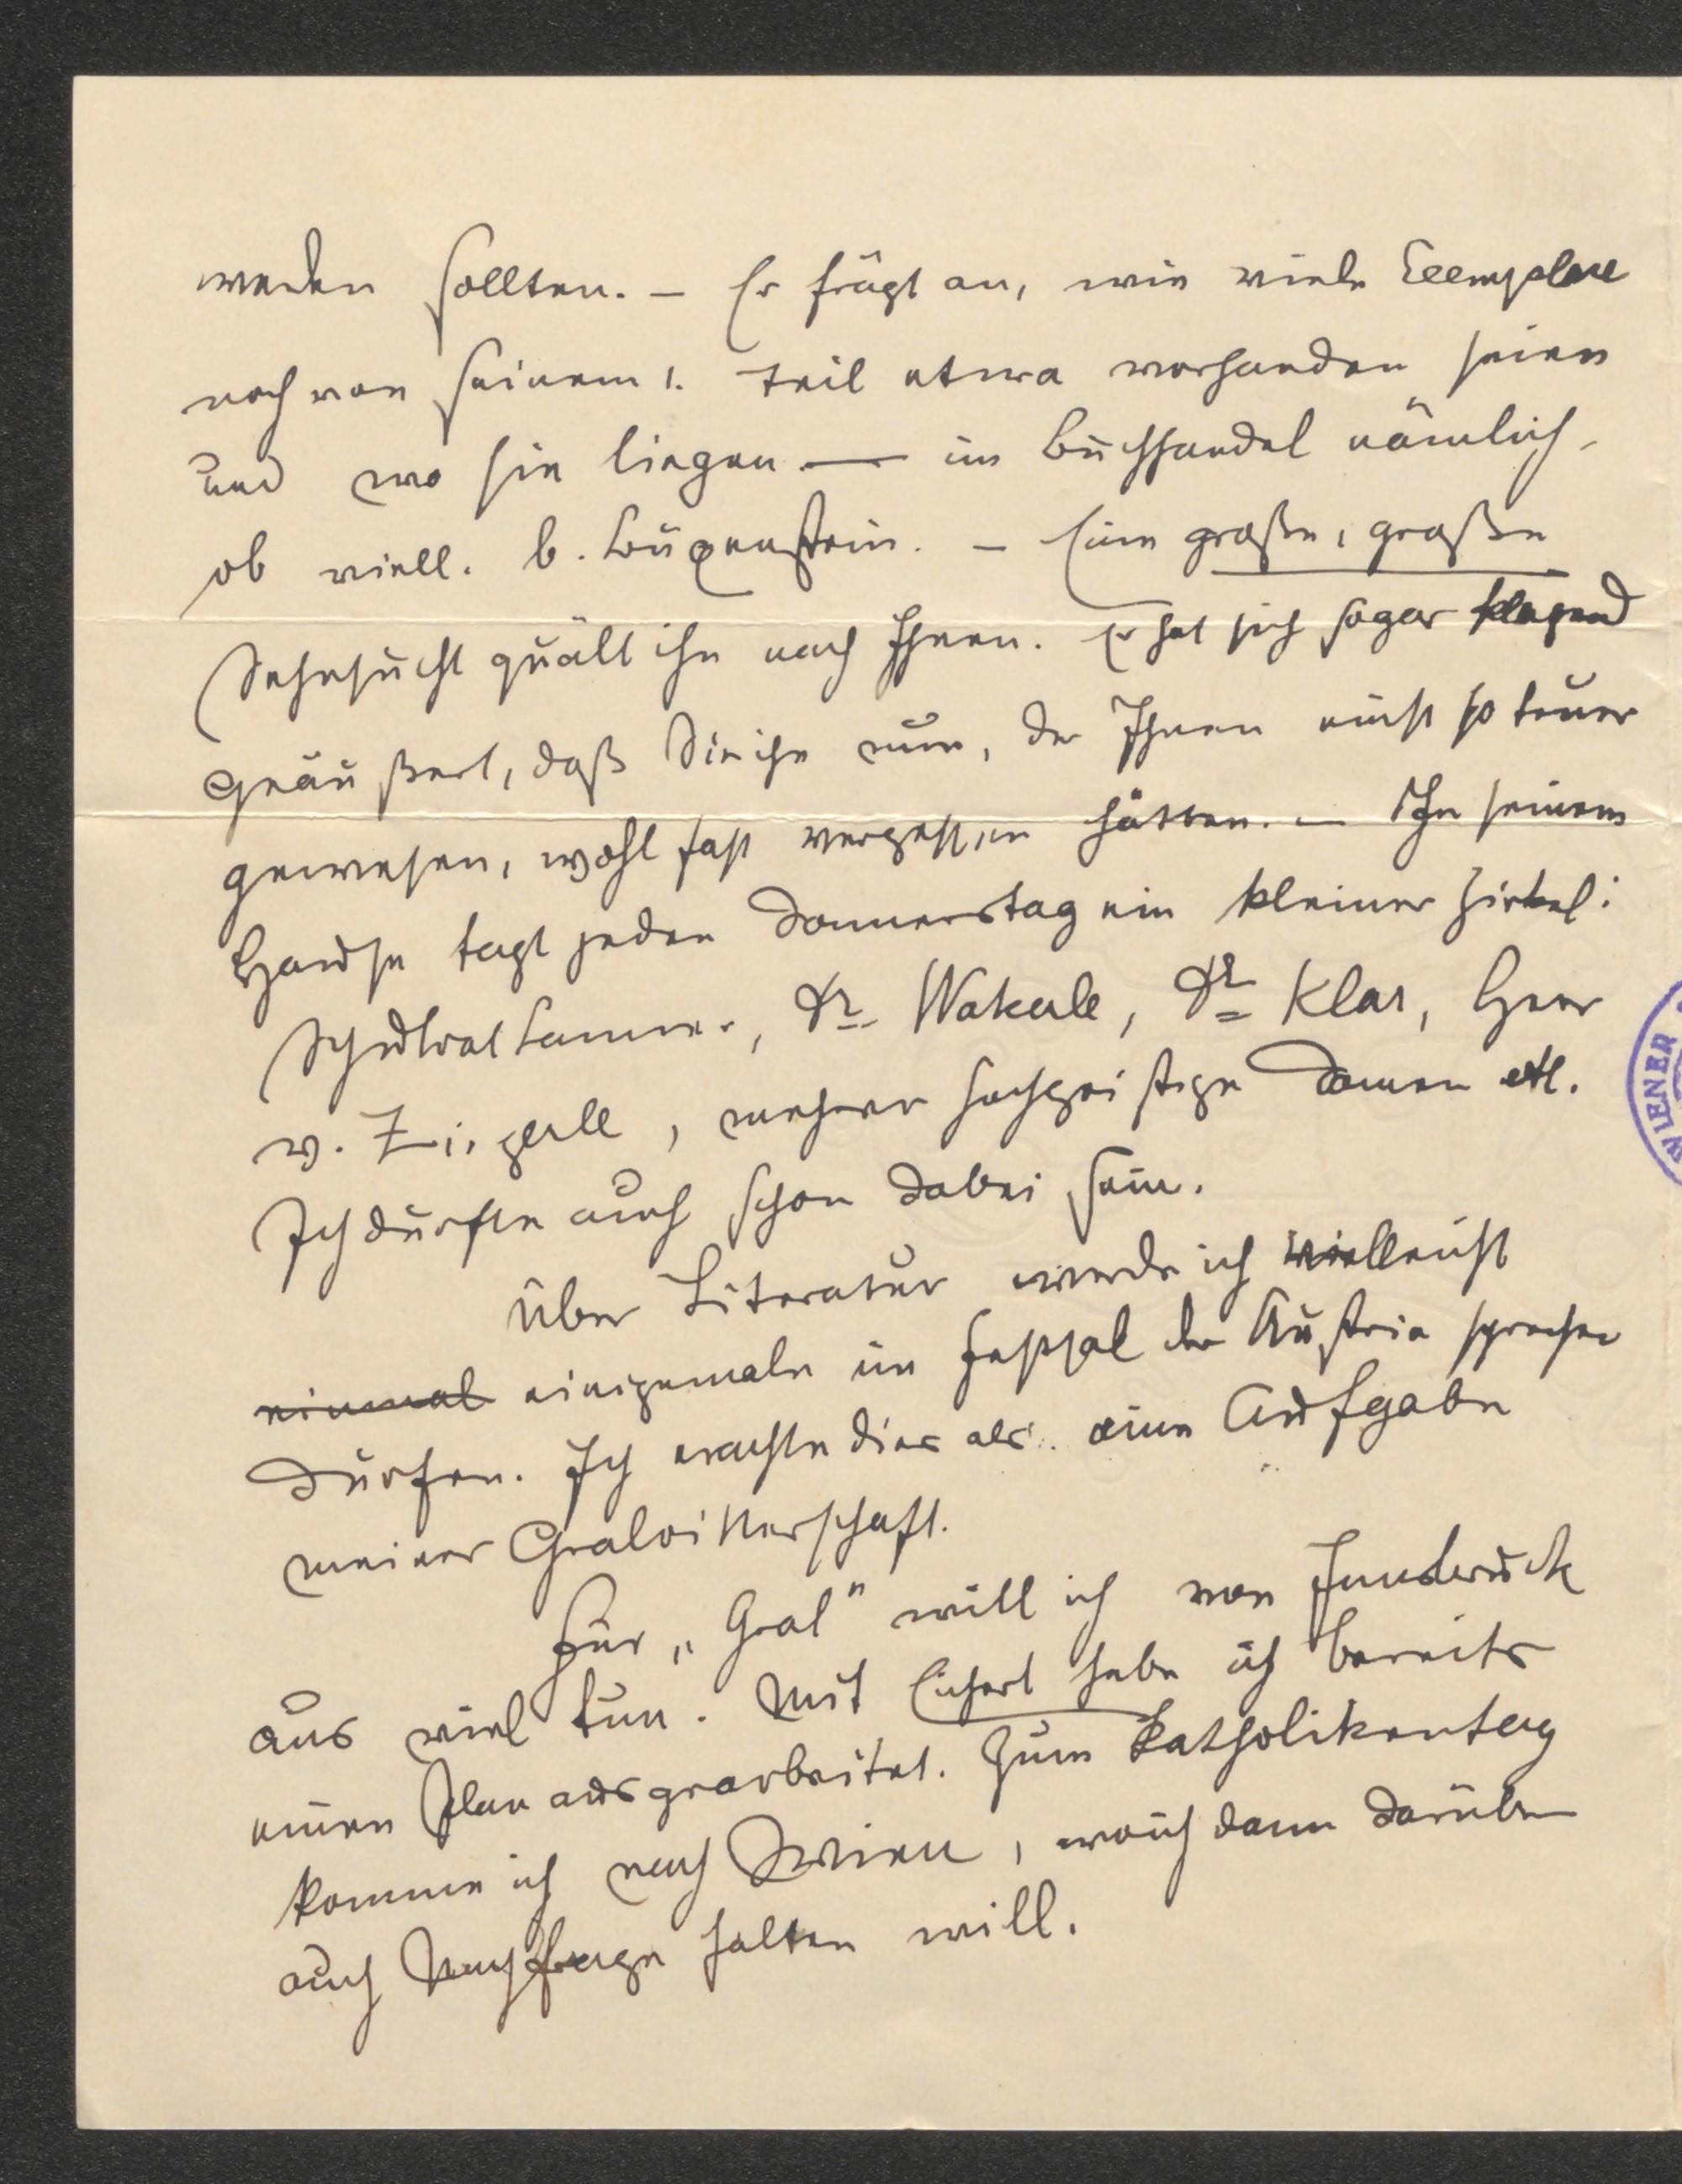 werden sollten. – Er frägt an, wie viele Exemplare
noch von seinem 1. Teil etwa vorhanden seien
und wo sie liegen — im Buchhandel nämlich,
ob viell. b. – Eine große, große
Sehnsucht quält ihn nach Ihnen. Er hat sich sogar klagend
geäußert, daß Sie ihn nun, der Ihnen einst so teuer
gewesen, wohl fast vergessen hätten. – In seinem
Hause tagt jeden Donnerstag ein kleiner Zirkel:
Schulrat Lammer, Dr. Wakerle, Dr. Klar, Herr
v. Zingerle, mehrere hochgeistige Damen etc.
Ich durfte auch schon dabei sein.
Über Literatur werde ich vielleicht
einmal einigemale im Festsaal der Austria sprechen
dürfen. Ich erachte dies als eine Aufgabe
meiner Gralritterschaft.
Für „Gral" will ich von Innsbruck
aus viel tun. Mit Eichert habe ich bereits
einen Plan ausgearbeitet. Zum Katholikentag
komme ich nach Wien, wo ich dann darüber
auch Nachfrage halten will.
WIENER